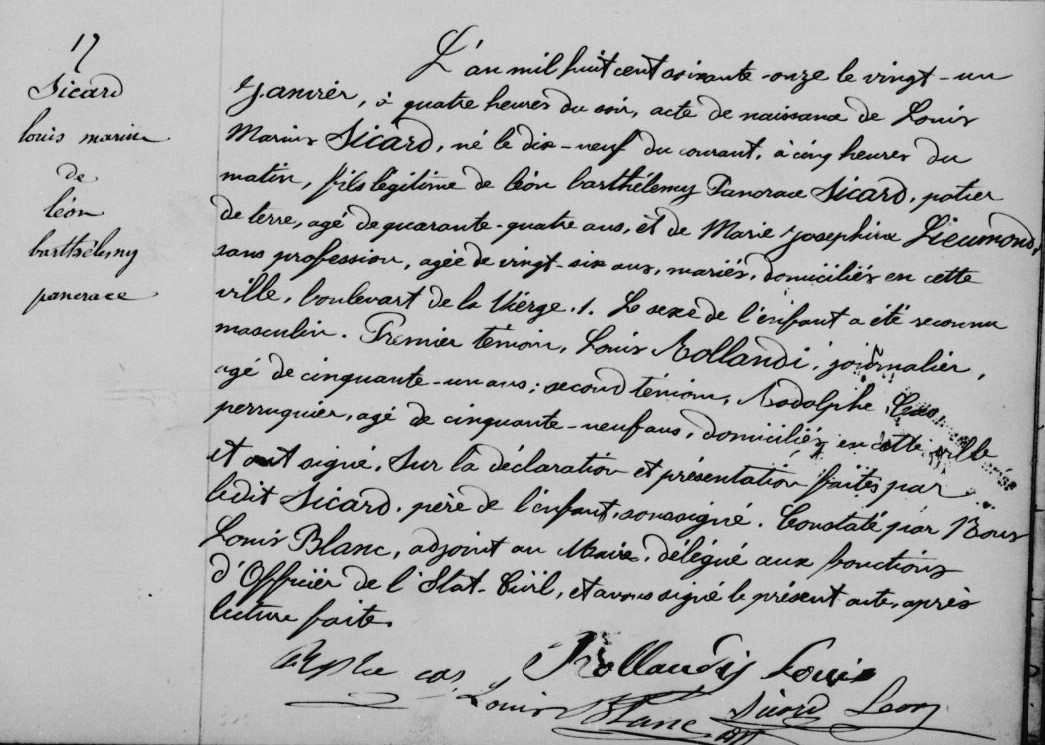 17
Sicard
louis marius
de
léon
barthélemy
pancrace
L'an mil huit cent soixante-onze le vingt-un
Janvier, à quatre heures du soir, acte de naissance de Louis
Marius Sicard, né le dix-neuf du courant, à cinq heures du
matin, fils légitime de léon barthélemy Pancrace Sicard, potier
de terre, agé de quarante-quatre ans, et de Marie Josephine Lieumond,
sans profession, agée de vingt-six ans, mariés, domiciliés en cette
ville, boulevart de la Vierge, 1. Le sexe de l'enfant a été reconnu
masculin. Premier témoin, Louis Rollandi, journalier,
agé de cinquante-un ans; second témoin, Rodolphe Cas,
perruquier, agé de cinquante-neuf ans, domiciliés en cette ville
et ont signé. Sur la déclaration et présentation faites par
ledit Sicard, père de l'enfant, soussigné. Constaté par Nous
Louis Blanc, adjoint au Maire, délégué aux fonctions
d'Officier de l'Etat-Civil, et avons signé le présent acte, après
lecture faite.
cas Rollandy Louis
Louis Blanc Sicard Leon